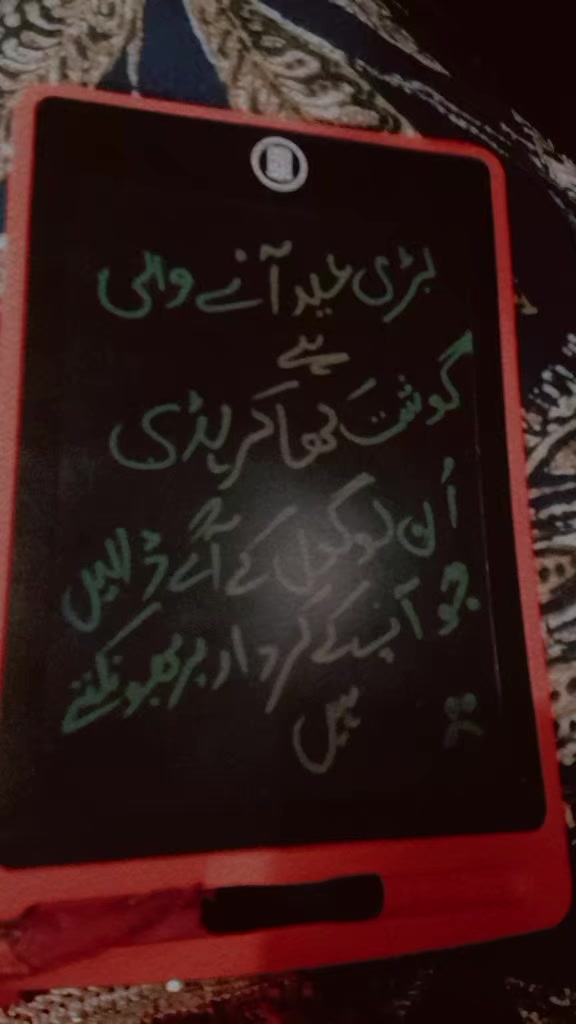 بڑی عید آنے والی
ہے
گوشت کھا کر ہڈی
اُن لوگوں کے آگے ڈالیں
جو آپ کے کردار پر بھونکتے
ہیں